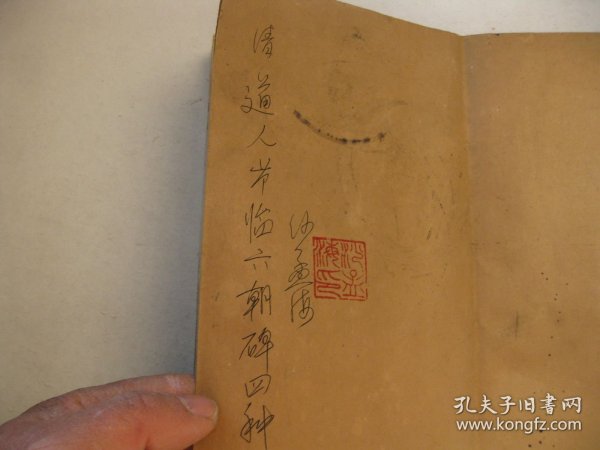 清道人节临六朝碑四种
沙孟海
沙孟海印
孔夫子旧书网
www.kongfz.com